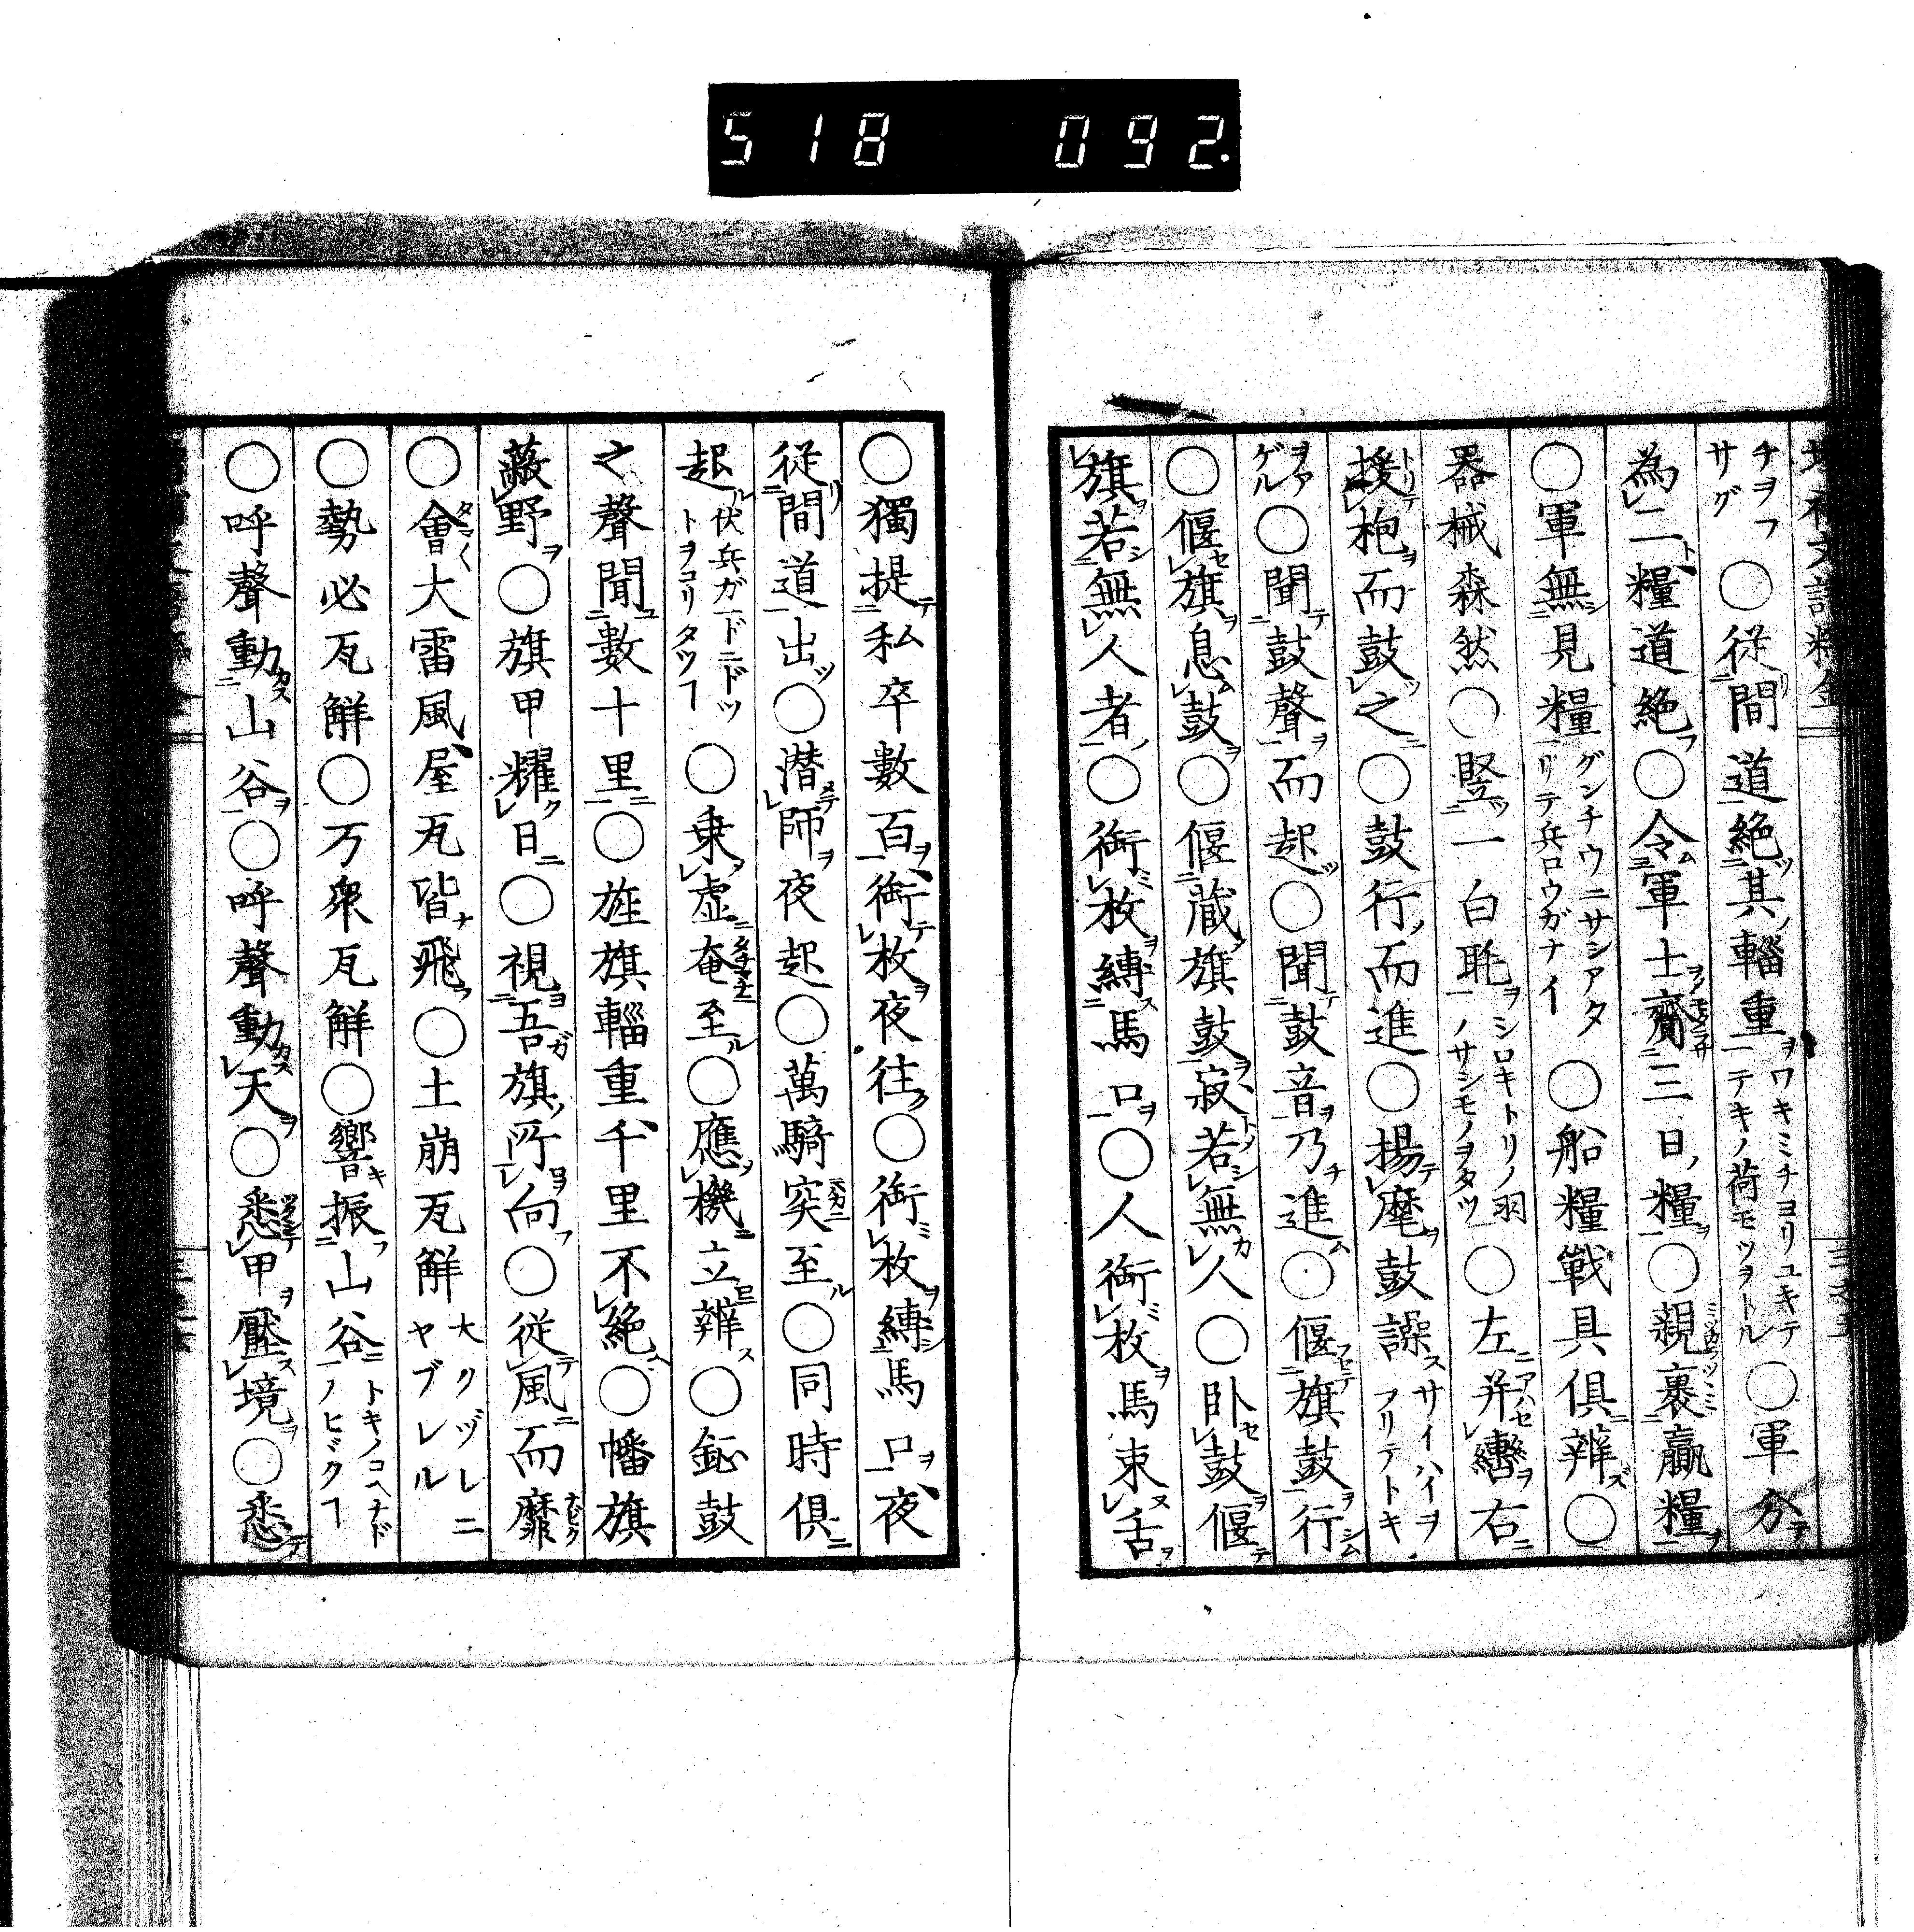 518 092.
チヲフサグ○從間道絶其輜重ワキミチヨリユキテテキノ荷モツヲトル○軍分
為二糧道絶○令軍士齎三日糧○親裹贏糧
○軍無見糧グンチウニサシアタリテ兵ロウガナイ○船糧戦具倶辨○
器械森然○竪一白毦シロキトリノ羽ノサシモノヲタツ○左并轡右
援枹而鼓之○鼓行而進○揚麾鼓譟サイハイヲフリテトキ
ヲアゲル○聞鼓聲而起○聞鼓音乃進○偃旗鼓行
○偃旗息鼓○偃蔵旗鼓寂若無人○臥鼓偃
旗若無人者○衘枚縛馬口○人衘枚馬束舌
○獨提私卒數百衘枚夜往○衘枚縛馬口夜
從間道出○潜師夜起○萬騎突至○同時倶
起伏兵ガ一ドニドツトヲコリタツヿ○乗虚奄至○應機立辨○鉦鼓
之聲聞數十里○旌旗輜重千里不絶○幡旗
蔽野○旗甲耀日○視吾旗所向○従風而靡
○會大雷風屋瓦皆飛○土崩瓦解大クヅレニヤブレル
○勢必瓦解○万衆瓦解○響振山谷トキノコヘナドノヒヾクヿ
○呼聲動山谷○呼聲動天○悉甲壓境○悉